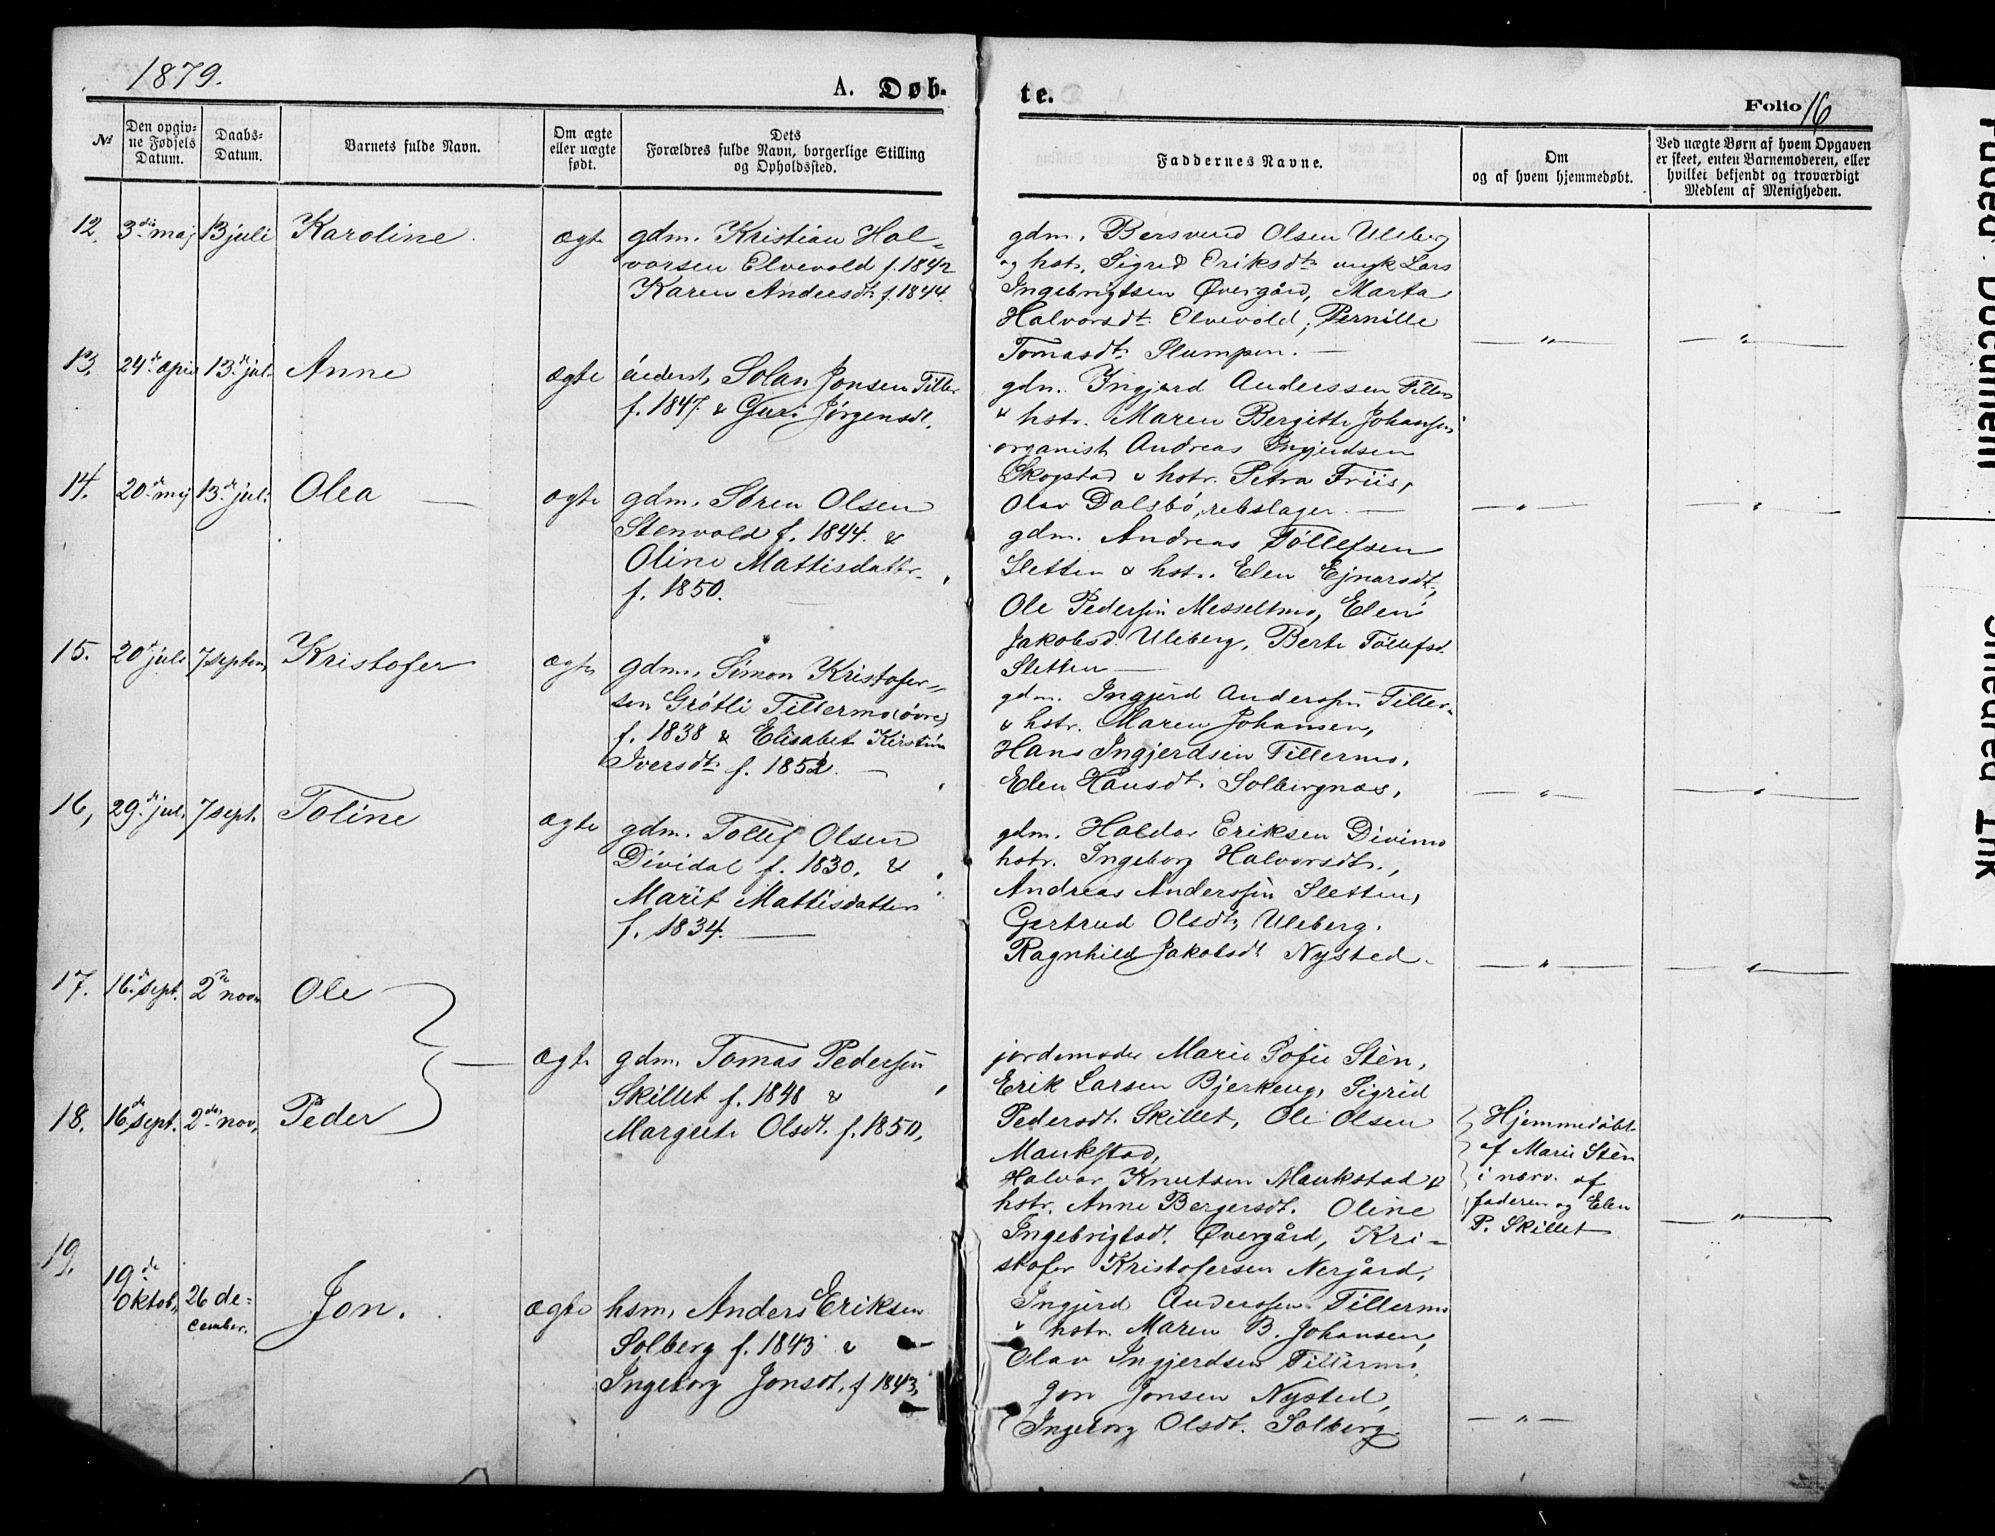 1879.
A. Døb-
te.
Folio 16
№
Den opgiv-
ne Fødsels
Datum.
Daabs-
Datum.
Barnets fulde Navn.
Om ægte
eller uægte
født.
Dets
Forældres fulde Navn, borgerlige Stilling
og Opholdssted.
Faddernes Navne.
Om
og af hvem hjemmedøbt.
Ved uægte Børn af hvem Opgaven
er skeet, enten Barnemoderen, eller
hvilket bekjendt og troværdigt
Medlem af Menigheden.
12. 3die maj 13 juli Karoline ægte gdm. Kristian Hal-
vorsen Elvevold f. 1842
Karen Andersdt f. 1844.
gdm. Bersvend Olsen Uleberg
og hstr. Sigrid Eriksdt. ungk Lars
Ingebrigtsen Øvergård, Marta
Halvorsdt. Elvevold, Pernille
Tomasdt. Slumpen. —
— " — — " —
13. 24de april 13de juli Anne ægte Jonsen Tiller
f. 1847 & Guri Jørgensdt.
gdm. Ingjerd Anderssen Tiller
& hstr. Maren Bergitte Johansen,
organist Andreas Ingjerdsen
Skogstad & hstr. Petra Friis,
Olav Dalsbø, rebslager. —
— " — — " —
14. 20de maj 13de juli Olea — ægte gdm. Søren Olsen
Stenvold f. 1844. &
Oline Mattisdatter
f. 1850.
gdm. Andreas Tøllefsen
Sletten & hstr. Elen Ejnarsdt,
Ole Pederssen Messeltmo, Elen
Jakobsd. Uleberg, Berte Tøllefsd.
Sletten —
15. 20de juli 7 septem. Kristofer ægte gdm. Simon Kristofer-
sen Grøtli Tillermo (øvre)
f. 1838 & Elisabet Kirstine
Iversdt. f. 1852. —
gdm. Ingjerd Anderssen Tiller-
& hstr. Maren Johansen,
Hans Ingjerdsen Tillermo,
Elen Hansdt. Solbergnæs,
— " — — " —
16, 29de juli 7 sept. Toline ægte gdm. Tollef Olsen
Dividal f. 1830. &
Marit Mattisdatter
f. 1834. —
gdm. Haldor Eriksen Divimo
hstr. Ingeborg Halvorsdt.,
Andreas Anderssen Sletten,
Gertrud Olsdt. Uleberg.
Ragnhild Jakobsdt Nysted.
— " — — " —
17. 16de sept. 2de nov. Ole
18. 16de sept. 2den nov, Peder
— ægte gdm. Tomas Pederssen
Skillet f. 1848 &
Margrete Olsdt. f. 1850,
jordemoder Marie Sofie Stèn,
Erik Larsen Bjerkeng, Sigrid
Pedersdt. Skillet, Ole Olsen
Maukstad,
Halvor Knutsen Maukstad &
hstr. Anne Bergersdt. Oline
Ingebrigtsdt. Øvergård, Kri-
stofer Kristofersen Nergård,
Hjemmedøbt
af Marie Stèn
i nærv. af
faderen og Elen
P. Skillet
— " —
19. 19de
oktob. 26 de-
cember. Jon. ægte hsm, Anders Eriksen
Solberg f. 1843 &
Ingeborg Jonsdt. f 1843,
Ingjerd Anderssen Tillermo
& hstr. Maren B. Johansen,
Olav Ingjerdsen Tillermo,
Jon Jonsen Nysted,
Ingeborg Olsdt. Solberg.
— " —
Faded Document
Smeared Ink